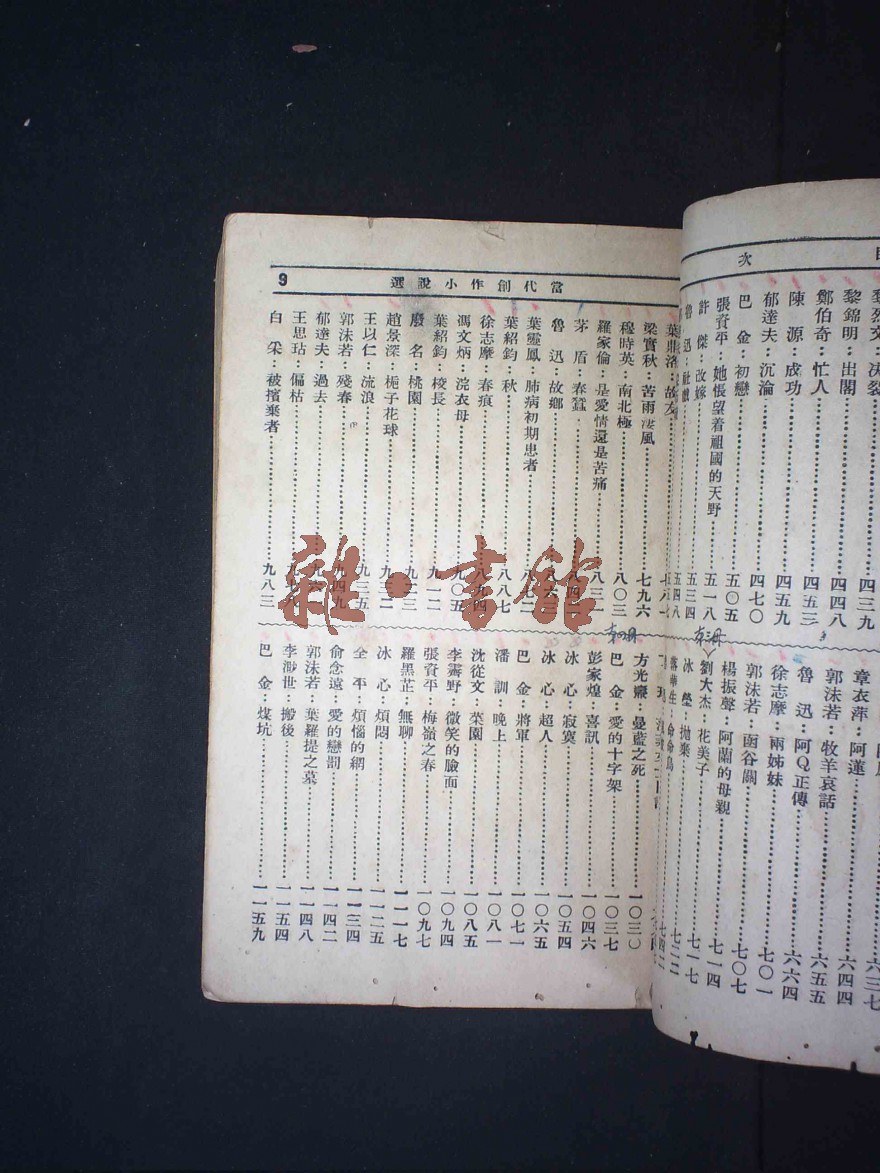 目次
黎烈文：決裂……四三九
黎錦明：出閣……四四八
鄭伯奇：忙人……四五三
陳　源：成功……四五九
郁達夫：沉淪……四七〇
巴　金：初戀……五〇五
張資平：她悵望着祖國的天野……五一八
許　傑：改嫁……五三四
魯　迅：社戲……五四八
六三七
章衣萍：阿蓮……六四四
郭沫若：牧羊哀話……六五五
魯　迅：阿Q正傳……六六四
徐志摩：兩姊妹……七〇一
郭沫若：函谷關……七〇七
楊振聲：阿蘭的母親……七一四
劉大杰：花美子……七一七
冰　瑩：拋棄……七二二
落華生：命命鳥……七四二
當代創作小說選
9
葉鼎洛：故友
梁實秋：苦雨凄風……七九六
穆時英：南北極……八〇三
羅家倫：是愛情還是苦痛……八三二
茅　盾：春蠶
魯　迅：故鄉
葉靈鳳：肺病初期患者
葉紹鈞：秋……八八七
徐志摩：春痕……八九四
馮文炳：浣衣母……九〇五
葉紹鈞：校長……九一二
廢　名：桃園
趙景深：梔子花球
王以仁：流浪……九三五
郭沫若：殘春……九四九
郁達夫：過去
王思玷：偏枯
白　采：被擯棄者……九八三
方光燾：曼藍之死……一〇三〇
巴　金：愛的十字架……一〇三七
彭家煌：喜訊……一〇四六
冰　心：寂寞……一〇五四
冰　心：超人……一〇六五
巴　金：將軍……一〇七一
潘　訓：晚上……一〇八一
沈從文：菜園……一〇八五
李霽野：微笑的臉面……一〇九四
張資平：梅嶺之春……一〇九七
羅黑芷：無聊……一一一七
冰　心：煩悶……一一二五
全　平：煩惱的網……一一三四
俞念遠：愛的戀罰……一一四二
郭沫若：葉羅提之墓……一一四八
李渺世：搬後……一一五四
巴　金：煤坑……一一五九
雜·書館